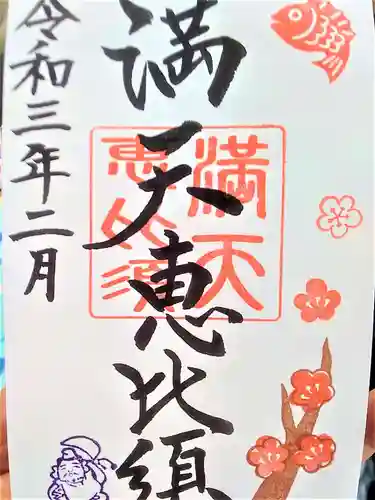 満天恵比須
令和三年二月
満天
恵比須